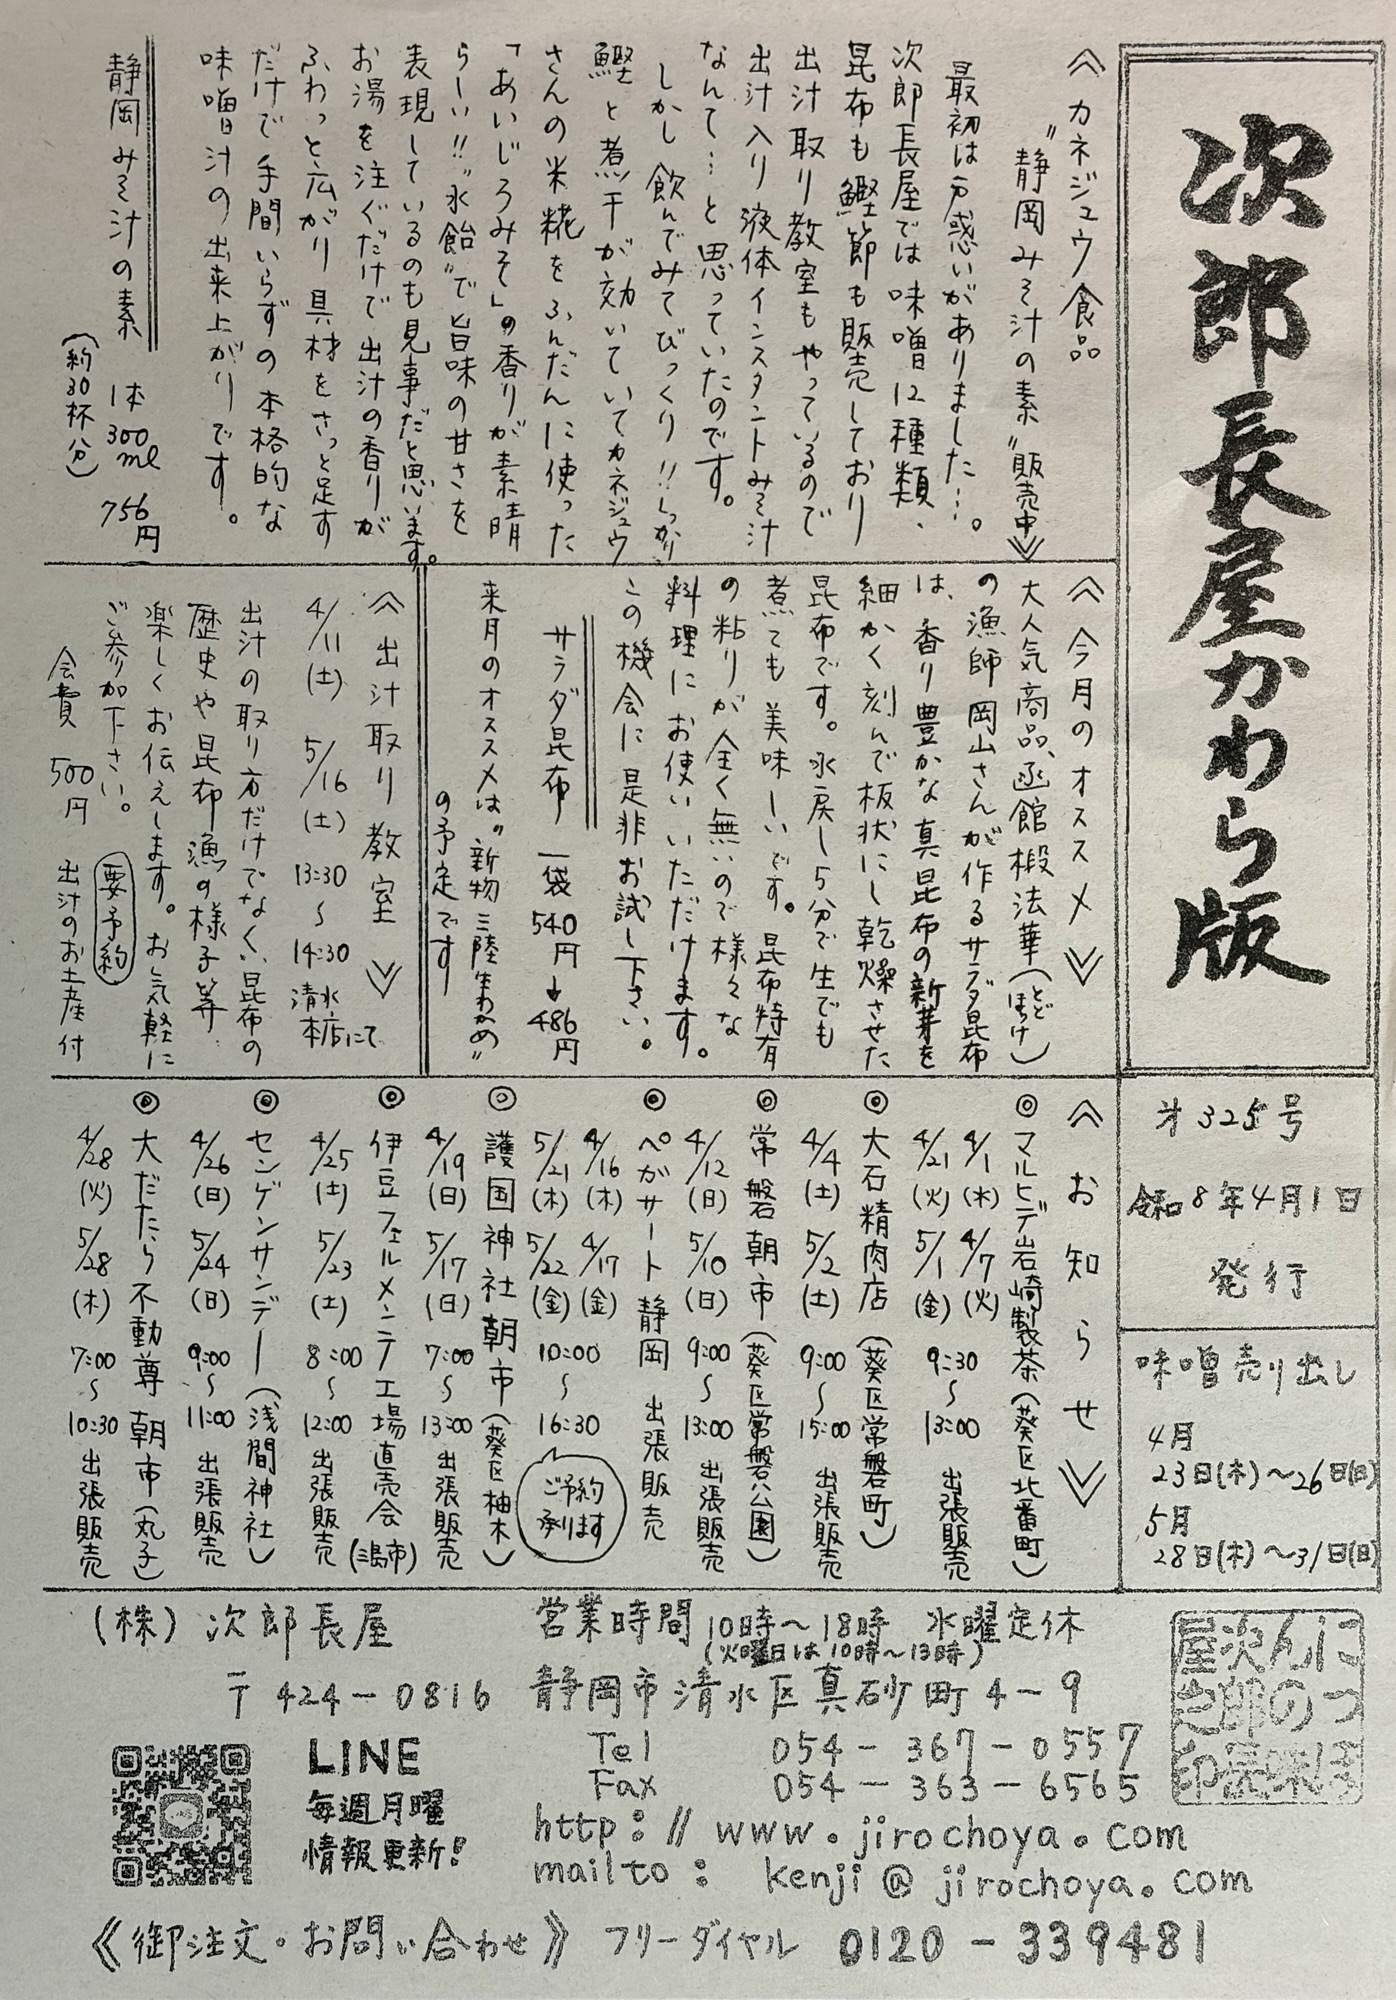 次郎長屋かわら版
才325号
令和8年4月1日
発行
味噌売り出し
4月
23日(木)〜26日(日)
5月
28日(木)〜31日(日)
≪カネジュウ食品
"静岡みそ汁の素"販売中≫
最初は戸惑いがありました…。
次郎長屋では味噌12種類、
昆布も鰹節も販売しており
出汁取り教室もやっているので
出汁入り液体インスタントみそ汁
なんて…と思っていたのです。
しかし飲んでみてびっくり!!しっかり
鰹と煮干が効いていてカネジュウ
さんの米糀をふんだんに使った
「あいじろみそ」の香りが素晴
らしい!!"水飴"で旨味の甘さを
表現しているのも見事だと思います。
お湯を注ぐだけで出汁の香りが
ふわっと広がり具材をさっと足す
だけで手間いらずの本格的な
味噌汁の出来上がりです。
静岡みそ汁の素 1本300ml 756円
(約30杯分)
≪今月のオススメ≫
大人気商品、函館椴法華(とどほっけ)
の漁師岡山さんが作るサラダ昆布
は、香り豊かな真昆布の新芽を
細かく刻んで板状にし乾燥させた
昆布です。水戻し5分で生でも
煮ても美味しいです。昆布特有
の粘りが全く無いので様々な
料理にお使いいただけます。
この機会に是非お試し下さい。
サラダ昆布 一袋540円→486円
来月のオススメは"新物三陸産わかめ"
の予定です
≪出汁取り教室≫
4/11(土) 5/16(土) 13:30〜14:30 清水本店にて
出汁の取り方だけでなく、昆布の
歴史や昆布漁の様子等
楽しくお伝えします。お気軽に
ご参加下さい。 要予約
会費 500円 出汁のお土産付
≪お知らせ≫
◎マルヒデ岩崎製茶(葵区北番町)
4/1(水) 4/7(火)
4/21(火) 5/1(金) 9:30〜13:00 出張販売
◎大石精肉店(葵区常磐町)
4/4(土) 5/2(土) 9:00〜15:00 出張販売
◎常磐朝市(葵区常磐公園)
4/12(日) 5/10(日) 9:00〜13:00 出張販売
◎ぺガサート静岡 出張販売
4/16(木) 4/17(金)
5/21(木) 5/22(金) 10:00〜16:30
ご予約
承ります
◎護国神社朝市(葵区柚木)
4/19(日) 5/17(日) 7:00〜13:00 出張販売
◎伊豆フェルメンテ工場直売会(三島市)
4/25(土) 5/23(土) 8:00〜12:00 出張販売
◎センゲンサンデー(浅間神社)
4/26(日) 5/24(日) 9:00〜11:00 出張販売
◎大だたら不動尊朝市(丸子)
4/28(火) 5/28(木) 7:00〜10:30 出張販売
(株)次郎長屋 営業時間 10時〜18時 水曜定休
(火曜日は10時〜13時)
〒424-0816 静岡市清水区真砂町4-9
Tel 054-367-0557
Fax 054-363-6565
LINE
毎週月曜
情報更新!
http://www.jirochoya.com
mailto: kenji@jirochoya.com
≪御注文・お問い合わせ≫ フリーダイヤル 0120-339481
にっぽ
んの味
次郎長
屋之印